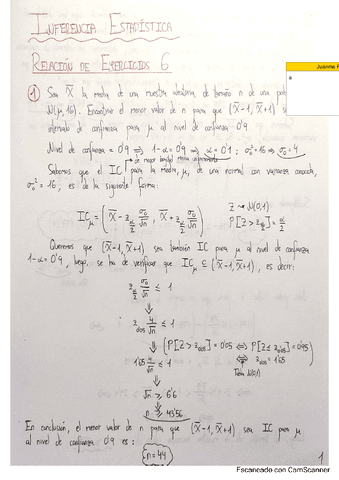 INFERENCIA ESTADÍSTICA
RELACIÓN DE EJERCICIOS 6
① Sea X̄ la media de una muestra aleatoria de tamaño n de una
N(μ,16). Encontrar el menor valor de n para que (X̄-1, X̄+1)
intervalo de confianza para μ al nivel de confianza 0'9
Nivel de confianza = 0'9 ⇒ 1-α = 0'9 ⇒ α = 0'1 ; σ₀² = 16 ⇒ σ₀ = 4
Sabemos que el IC para la media, μ, de una normal con varianza conocida,
σ₀² = 16, es de la siguiente forma:
IC_μ = (X̄ - z_{α/2} σ₀/√n, X̄ + z_{α/2} σ₀/√n)
Z ~ N(0,1)
P[Z > z_{α/2}] = α/2
Queremos que (X̄-1, X̄+1) sea también IC para μ al nivel de confianza
1-α = 0'9, luego, se ha de verificar que IC_μ ⊆ (X̄-1, X̄+1), es decir:
z_{α/2} σ₀/√n ≤ 1
⇓
z_{0'05} 4/√n ≤ 1
⇓ (P[Z > z_{0'05}] = 0'05 ⇔ P[Z ≤ z_{0'05}] = 0'95
1'65 4/√n ≤ 1 ⇔ z_{0'05} = 1'65)
Tabla N(0,1)
⇓
√n ≥ 6'6
⇓
n ≥ 43'56
En conclusión, el menor valor de n para que (X̄-1, X̄+1) sea IC para μ
al nivel de confianza 0'9 es :
n = 44
1
Escaneado con CamScanner